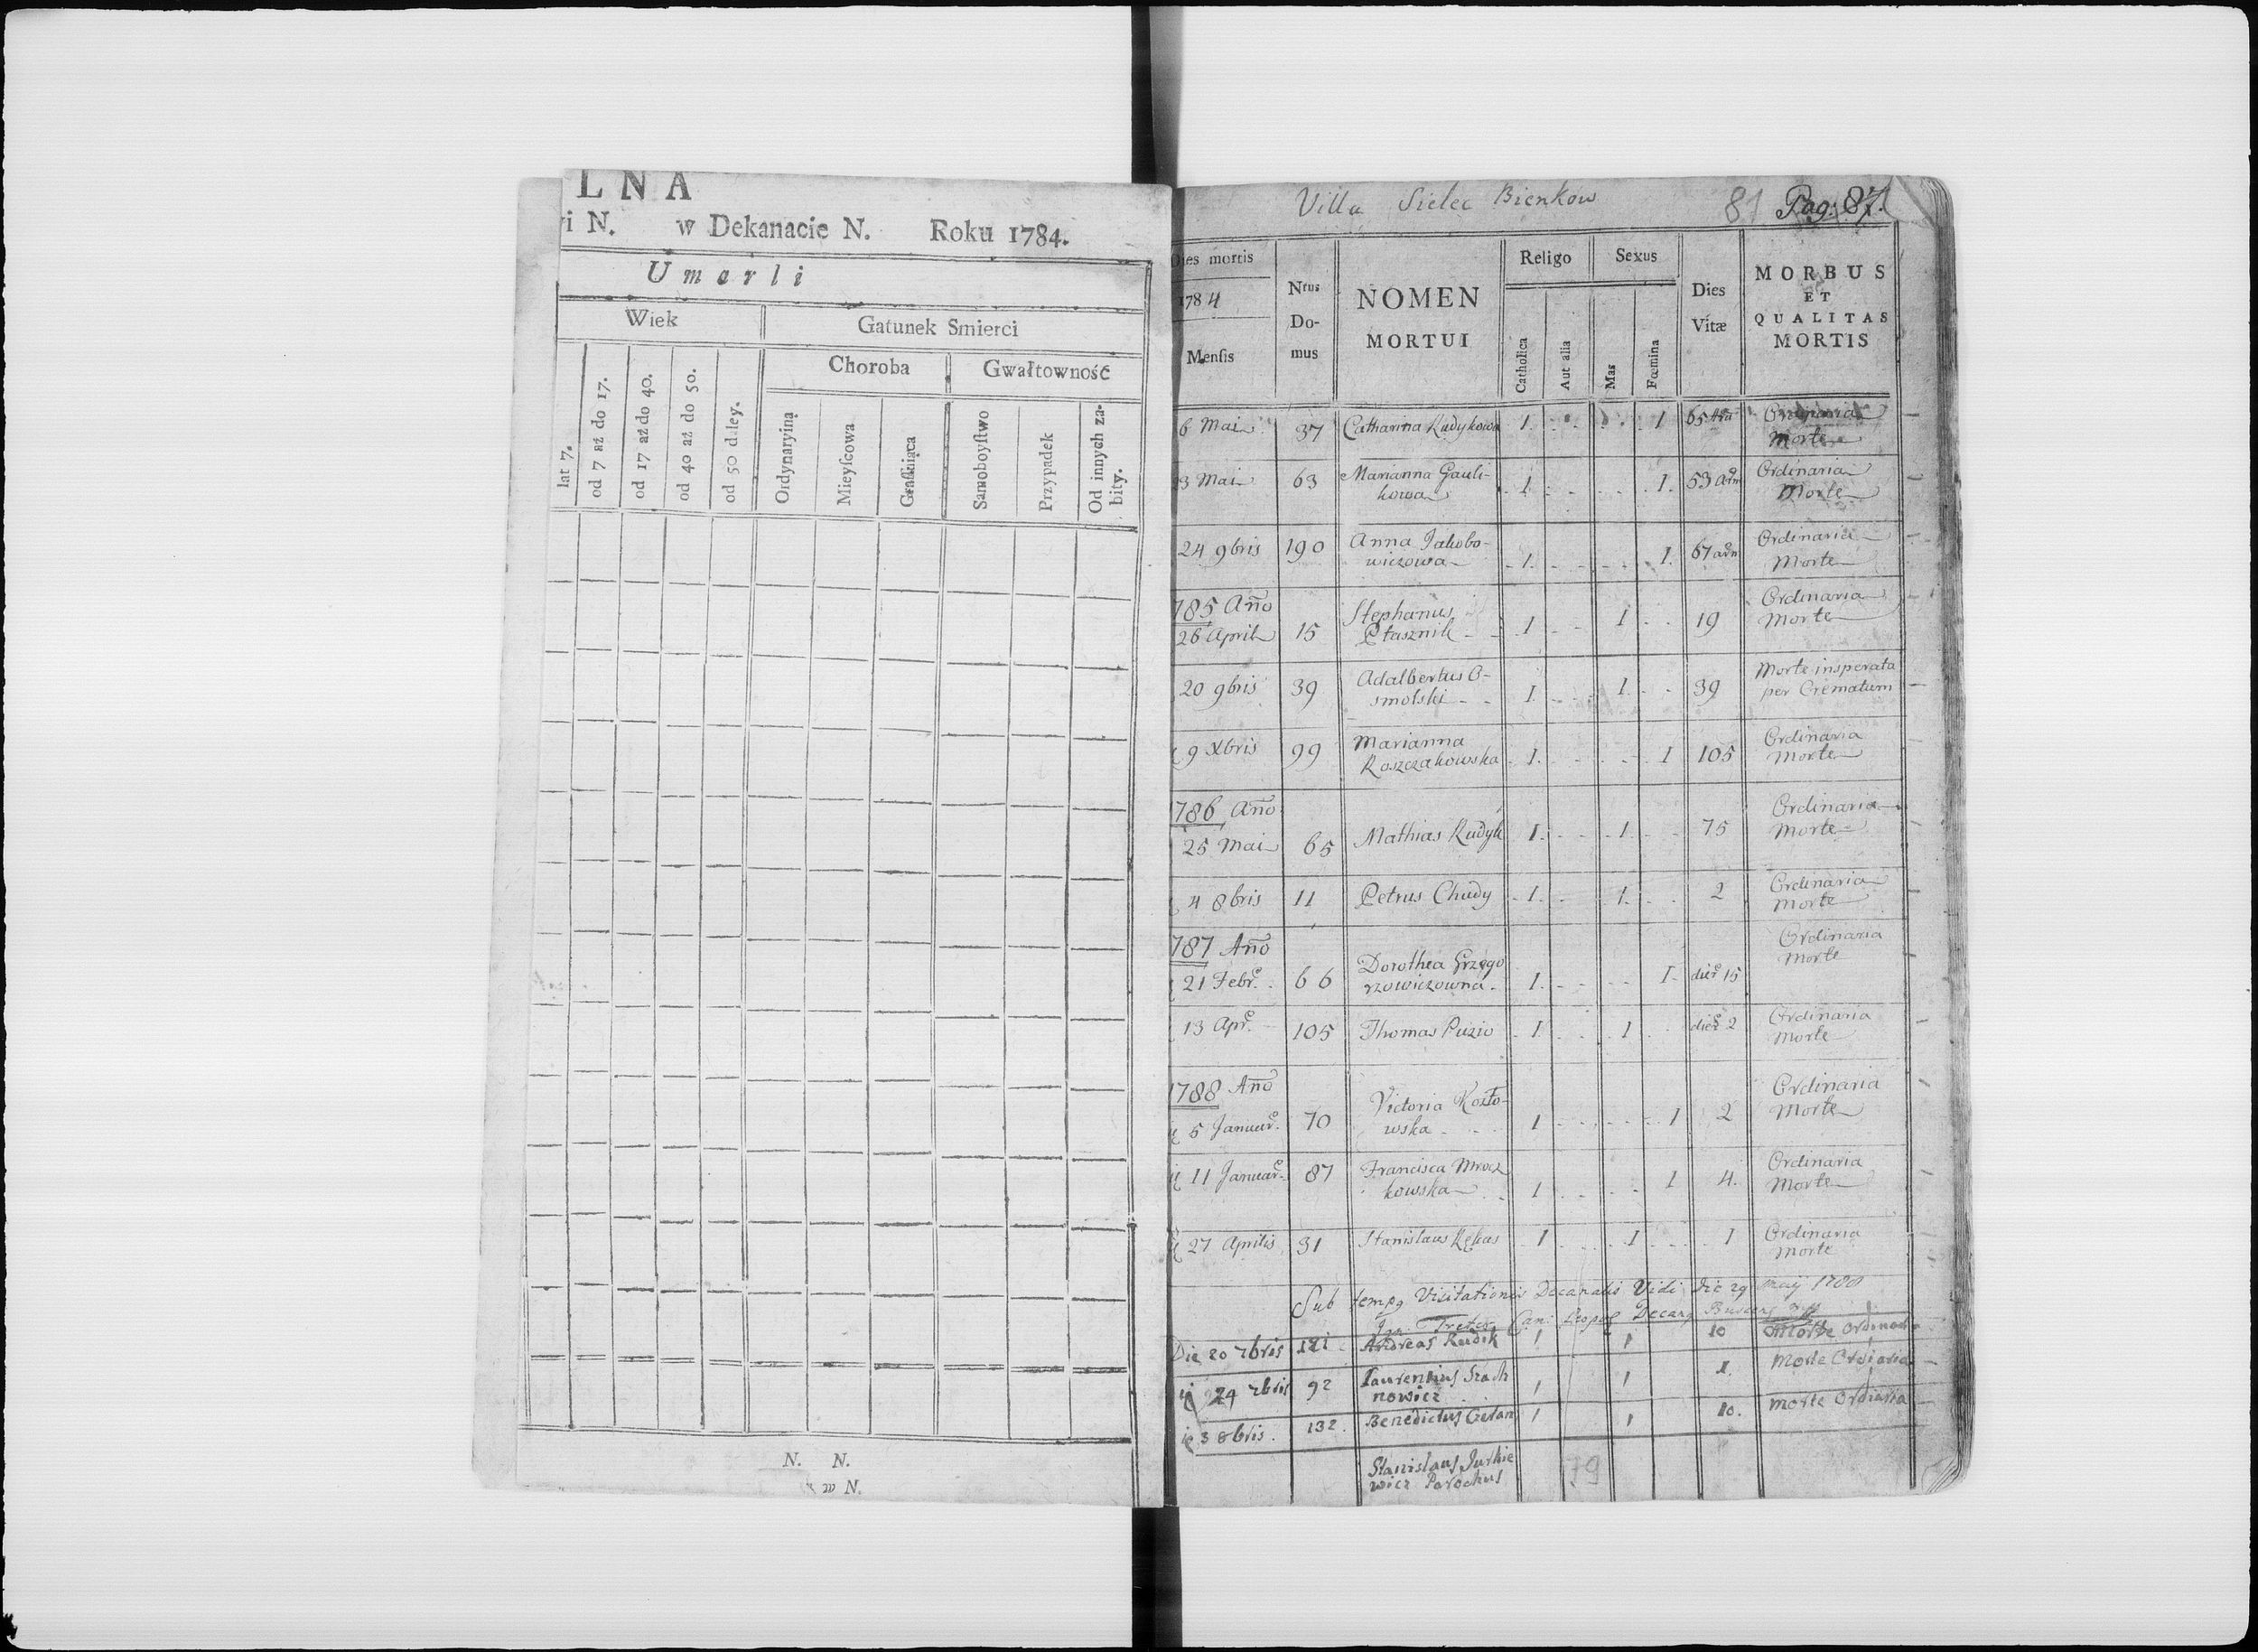 LNA
i N. w Dekanacie N. Roku 1784.
Umarli
Wiek
Gatunek Smierci
Choroba
Gwałtowność
lat 7.
od 7 aż do 17.
od 17 aż do 40.
od 40 aż do 50.
od 50 daley.
Ordynaryiną
Mieyſcowa
Graſſuiąca
Samoboyſtwo
Przypadek
Od innych za-
bity.
N. N.
w N.
Villa Sielec Bienkow 81 Pag: 87.
Dies mortis
1784
Menſis
Nrus
Do-
mus
NOMEN
MORTUI
Religo
Catholica
Aut alia
Sexus
Mas
Fœmina
Dies
Vitæ
MORBUS
ET
QUALITAS
MORTIS
6 Mai 37 Catharina Rudykowa 1 1 65 Ordinaria
Morte
3 Mai 63 Marianna Gauli-
kowa 1 1. 53 Ordinaria
Morte
24 9bris 190 Anna Jakobo-
wiczowa 1 1. 67 Ordinaria
Morte
785 Año
26 April 15 Stephanus
Ptasznik 1 1 19 Ordinaria
Morte
20 9bris 39 Adalbertus O-
smolski 1 1 39 Morte insperata
per Crematum
9 Xbris 99 Marianna
Koszczakowska 1. 1 105 Ordinaria
Morte
1786 Año
25 Mai 65 Mathias Rudyk 1. 1 75 Ordinaria
Morte
4 8bris 11 Petrus Chudy 1. 1. 2 Ordinaria
Morte
787 Año
21 Febr. 66 Dorothea Grzego
rzowiczowna. 1. 1 dier 15 Ordinaria
Morte
13 Apr. 105 Thomas Puzio 1 1 dier 2 Ordinaria
Morte
1788 Año
5 Januar. 70 Victoria Kozło-
wska 1 1 2 Ordinaria
Morte
11 Januar. 87 Francisca Mrocz
kowska 1 1 4. Ordinaria
Morte
27 Aprilis 31 Stanislaus Rękas 1 1 1 Ordinaria
Morte
Sub temp9 Visitationis Decanalis Vidi Die 29 Maij 1788
Can: Leopol Decan9
Die 20 7bris 121 Andreas Rudik 1 1 10 Morte Ordinaria
24 7bris 92 Laurentius Szach
nowicz 1 1 1. Morte Ordiaria
3 8bris. 132. Benedictus 1 1 10. Morte Ordiaria
Stanislaus Jurkie
wicz Parochus
79